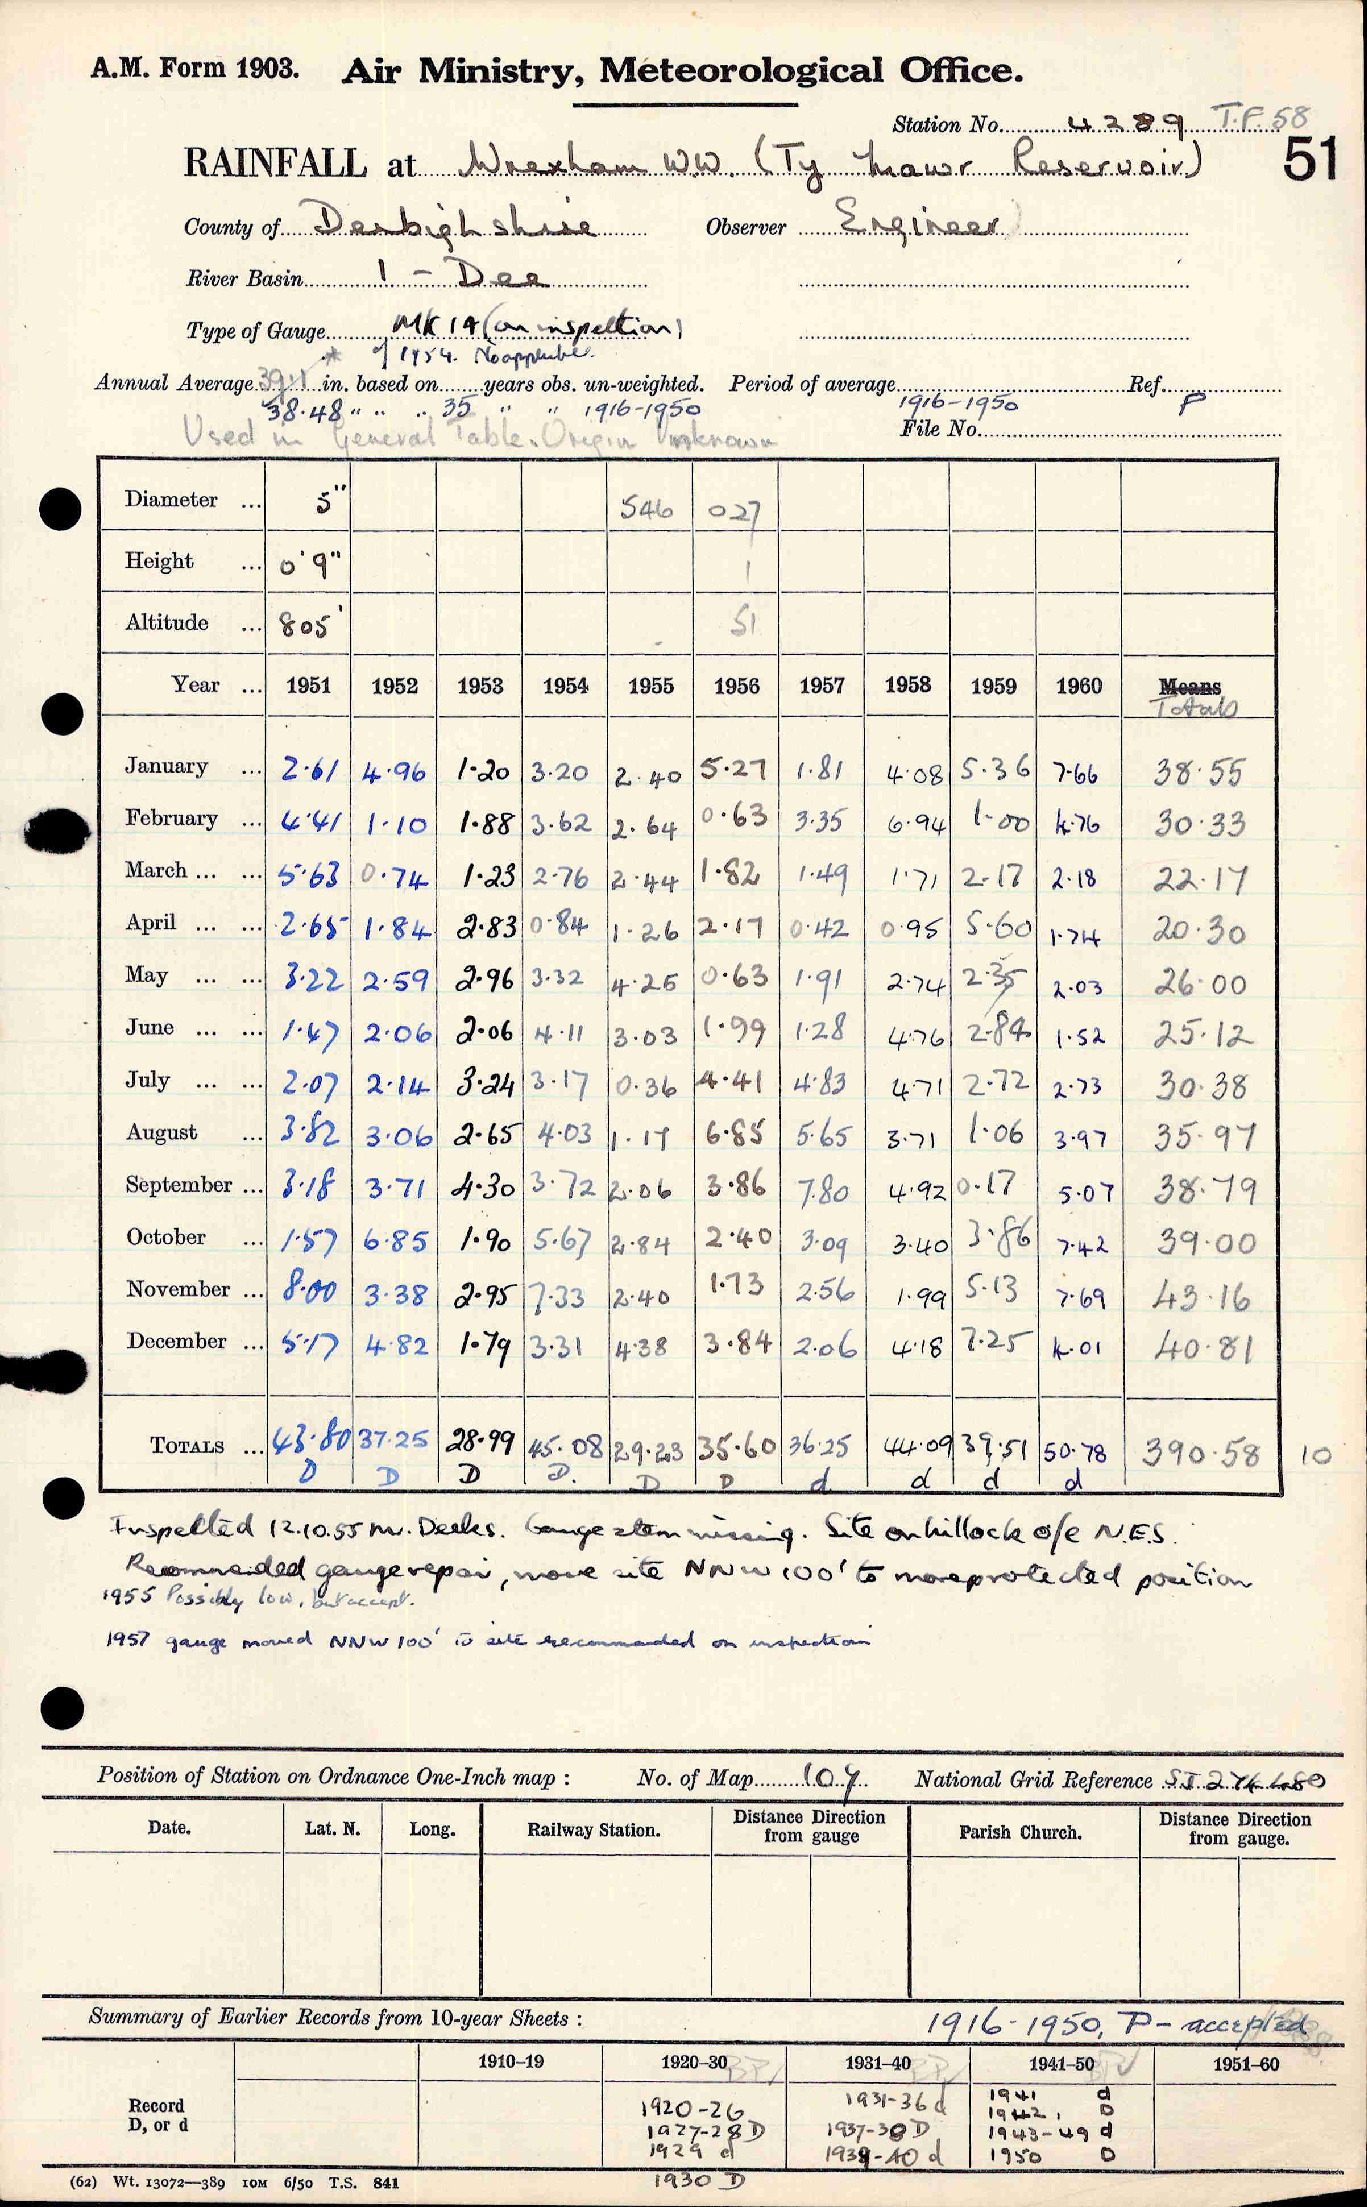 A.M. Form 1903. Air Ministry, Meteorological Office.
Station No. 4289 T.F. 58
RAINFALL at Wrexham W.W. (Ty Mawr Reservoir) 51
County of Denbighshire Observer Engineer
River Basin 1 - Dee
Type of Gauge MK 1A (on inspection)
of 1954. No apptube.
Annual Average 39.1 in. based on years obs. un-weighted. Period of average Ref.
38.48 " " .. 35 " " 1916-1950 1916-1950 P
Used in General Table. Origin Unknown File No.
Diameter ... 5" 546 027
Height ... 0'9" 1
Altitude ... 805' 51
Year ... 1951 1952 1953 1954 1955 1956 1957 1958 1959 1960 Means
Totals
January ... 2.61 4.96 1.20 3.20 2.40 5.27 1.81 4.08 5.36 7.66 38.55
February ... 4.41 1.10 1.88 3.62 2.64 0.63 3.35 6.94 1.00 4.76 30.33
March ... ... 5.63 0.74 1.23 2.76 2.44 1.82 1.49 1.71 2.17 2.18 22.17
April ... ... 2.65 1.84 2.83 0.84 1.26 2.17 0.42 0.95 5.60 1.74 20.30
May ... ... 3.22 2.59 2.96 3.32 4.25 0.63 1.91 2.74 2.35 2.03 26.00
June ... ... 1.47 2.06 2.06 4.11 3.03 1.99 1.28 4.76 2.84 1.52 25.12
July ... ... 2.07 2.14 3.24 3.17 0.36 4.41 4.83 4.71 2.72 2.73 30.38
August ... 3.82 3.06 2.65 4.03 1.17 6.85 5.65 3.71 1.06 3.97 35.97
September ... 3.18 3.71 4.30 3.72 2.06 3.86 7.80 4.92 0.17 5.07 38.79
October ... 1.57 6.85 1.90 5.67 2.84 2.40 3.09 3.40 3.86 7.42 39.00
November ... 8.00 3.38 2.95 7.33 2.40 1.73 2.56 1.99 5.13 7.69 43.16
December ... 5.17 4.82 1.79 3.31 4.38 3.84 2.06 4.18 7.25 4.01 40.81
TOTALS ... 43.80 37.25 28.99 45.08 29.23 35.60 36.25 44.09 39.51 50.78 390.58 10
D D D D. D D d d d d
Inspected 12.10.55 Mr. Deeks. Gauge stem missing. Site on hillock o/e N.E.S.
Recommended gauge repair, move site NNW 100' to more protected position
1955 Possibly low, but accept.
1957 gauge moved NNW 100' to site recommended on inspection
Position of Station on Ordnance One-Inch map : No. of Map 109 National Grid Reference SJ 274480
Date. Lat. N. Long. Railway Station. Distance Direction from gauge Parish Church. Distance Direction from gauge.
Summary of Earlier Records from 10-year Sheets : 1916-1950, P - accepted
1910-19 1920-30 1931-40 1941-50 1951-60
Record D, or d
1920-26
1927-28 D
1929 d
1930 D
1931-36 d
1937-38 D
1939-40 d
1941 d
1942, D
1943-49 d
1950 D
(62) Wt. 13072—389 10M 6/50 T.S. 841